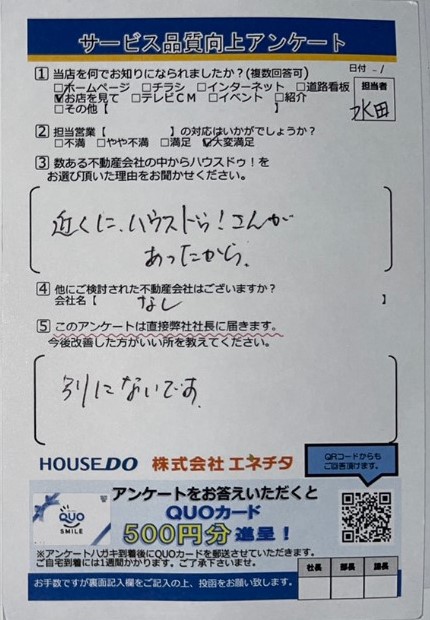 サービス品質向上アンケート
日付
担当者
水田
1 当店を何でお知りになられましたか?(複数回答可)
□ホームページ □チラシ □インターネット □道路看板
☑お店を見て □テレビCM □イベント □紹介
□その他【 】
2 担当営業【 】の対応はいかがでしょうか?
□不満 □やや不満 □満足 ☑大変満足
3 数ある不動産会社の中からハウスドゥ!を
お選び頂いた理由をお聞かせください。
近くに、ハウスドゥ!さんが
あったから。
4 他にご検討された不動産会社はございますか?
会社名【 なし 】
5 このアンケートは直接弊社社長に届きます。
今後改善した方がいい所を教えてください。
別にないです。
HOUSE DO 株式会社 エネチタ
QRコードからも
ご回答頂けます。
QUO
SMILE
アンケートをお答えいただくと
QUOカード
500円分 進呈!
※アンケートハガキ到着後にQUOカードを郵送させていただきます。
ご自宅到着には1週間かかります。ご了承下さいませ。
社長 部長 課長
お手数ですが裏面記入欄をご記入の上、投函をお願い致します。